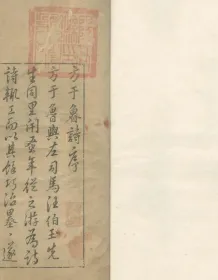 方于魯詩序
方于魯與左司馬汪伯玉先
生同里閈蚤年從之游為詩
詩輒工而以其餘巧治墨〻遂